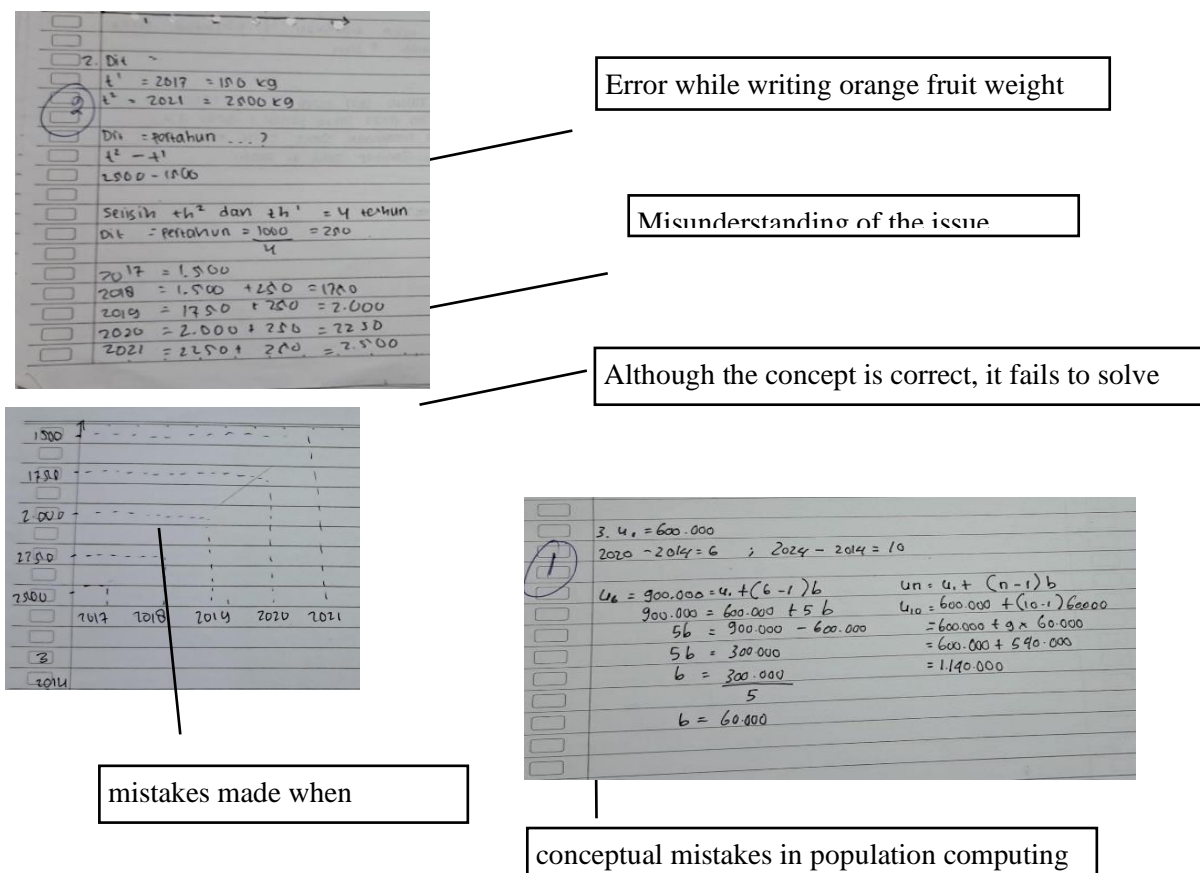 2. Dit =
t¹ = 2017 = 150 kg
t² = 2021 = 2500 kg
2
Dit = pertahun ... ?
t² - t¹
2500 - 1500
Selisih th² dan th¹ = 4 tahun
Dit = pertahun = 1000/4 = 250
2017 = 1.500
2018 = 1.500 + 250 = 1750
2019 = 1750 + 250 = 2.000
2020 = 2.000 + 250 = 2250
2021 = 2250 + 250 = 2.500
Error while writing orange fruit weight
Misunderstanding of the issue
Although the concept is correct, it fails to solve
1500
1750
2.000
2250
2500
2017 2018 2019 2020 2021
3
2014
mistakes made when
3. u₁ = 600.000
1
2020 - 2014 = 6 ; 2024 - 2014 = 10
u₆ = 900.000 = u₁ + (6-1)b
900.000 = 600.000 + 5b
5b = 900.000 - 600.000
5b = 300.000
b = 300.000/5
b = 60.000
un = u₁ + (n-1)b
u₁₀ = 600.000 + (10-1)60000
= 600.000 + 9 x 60.000
= 600.000 + 540.000
= 1.140.000
conceptual mistakes in population computing